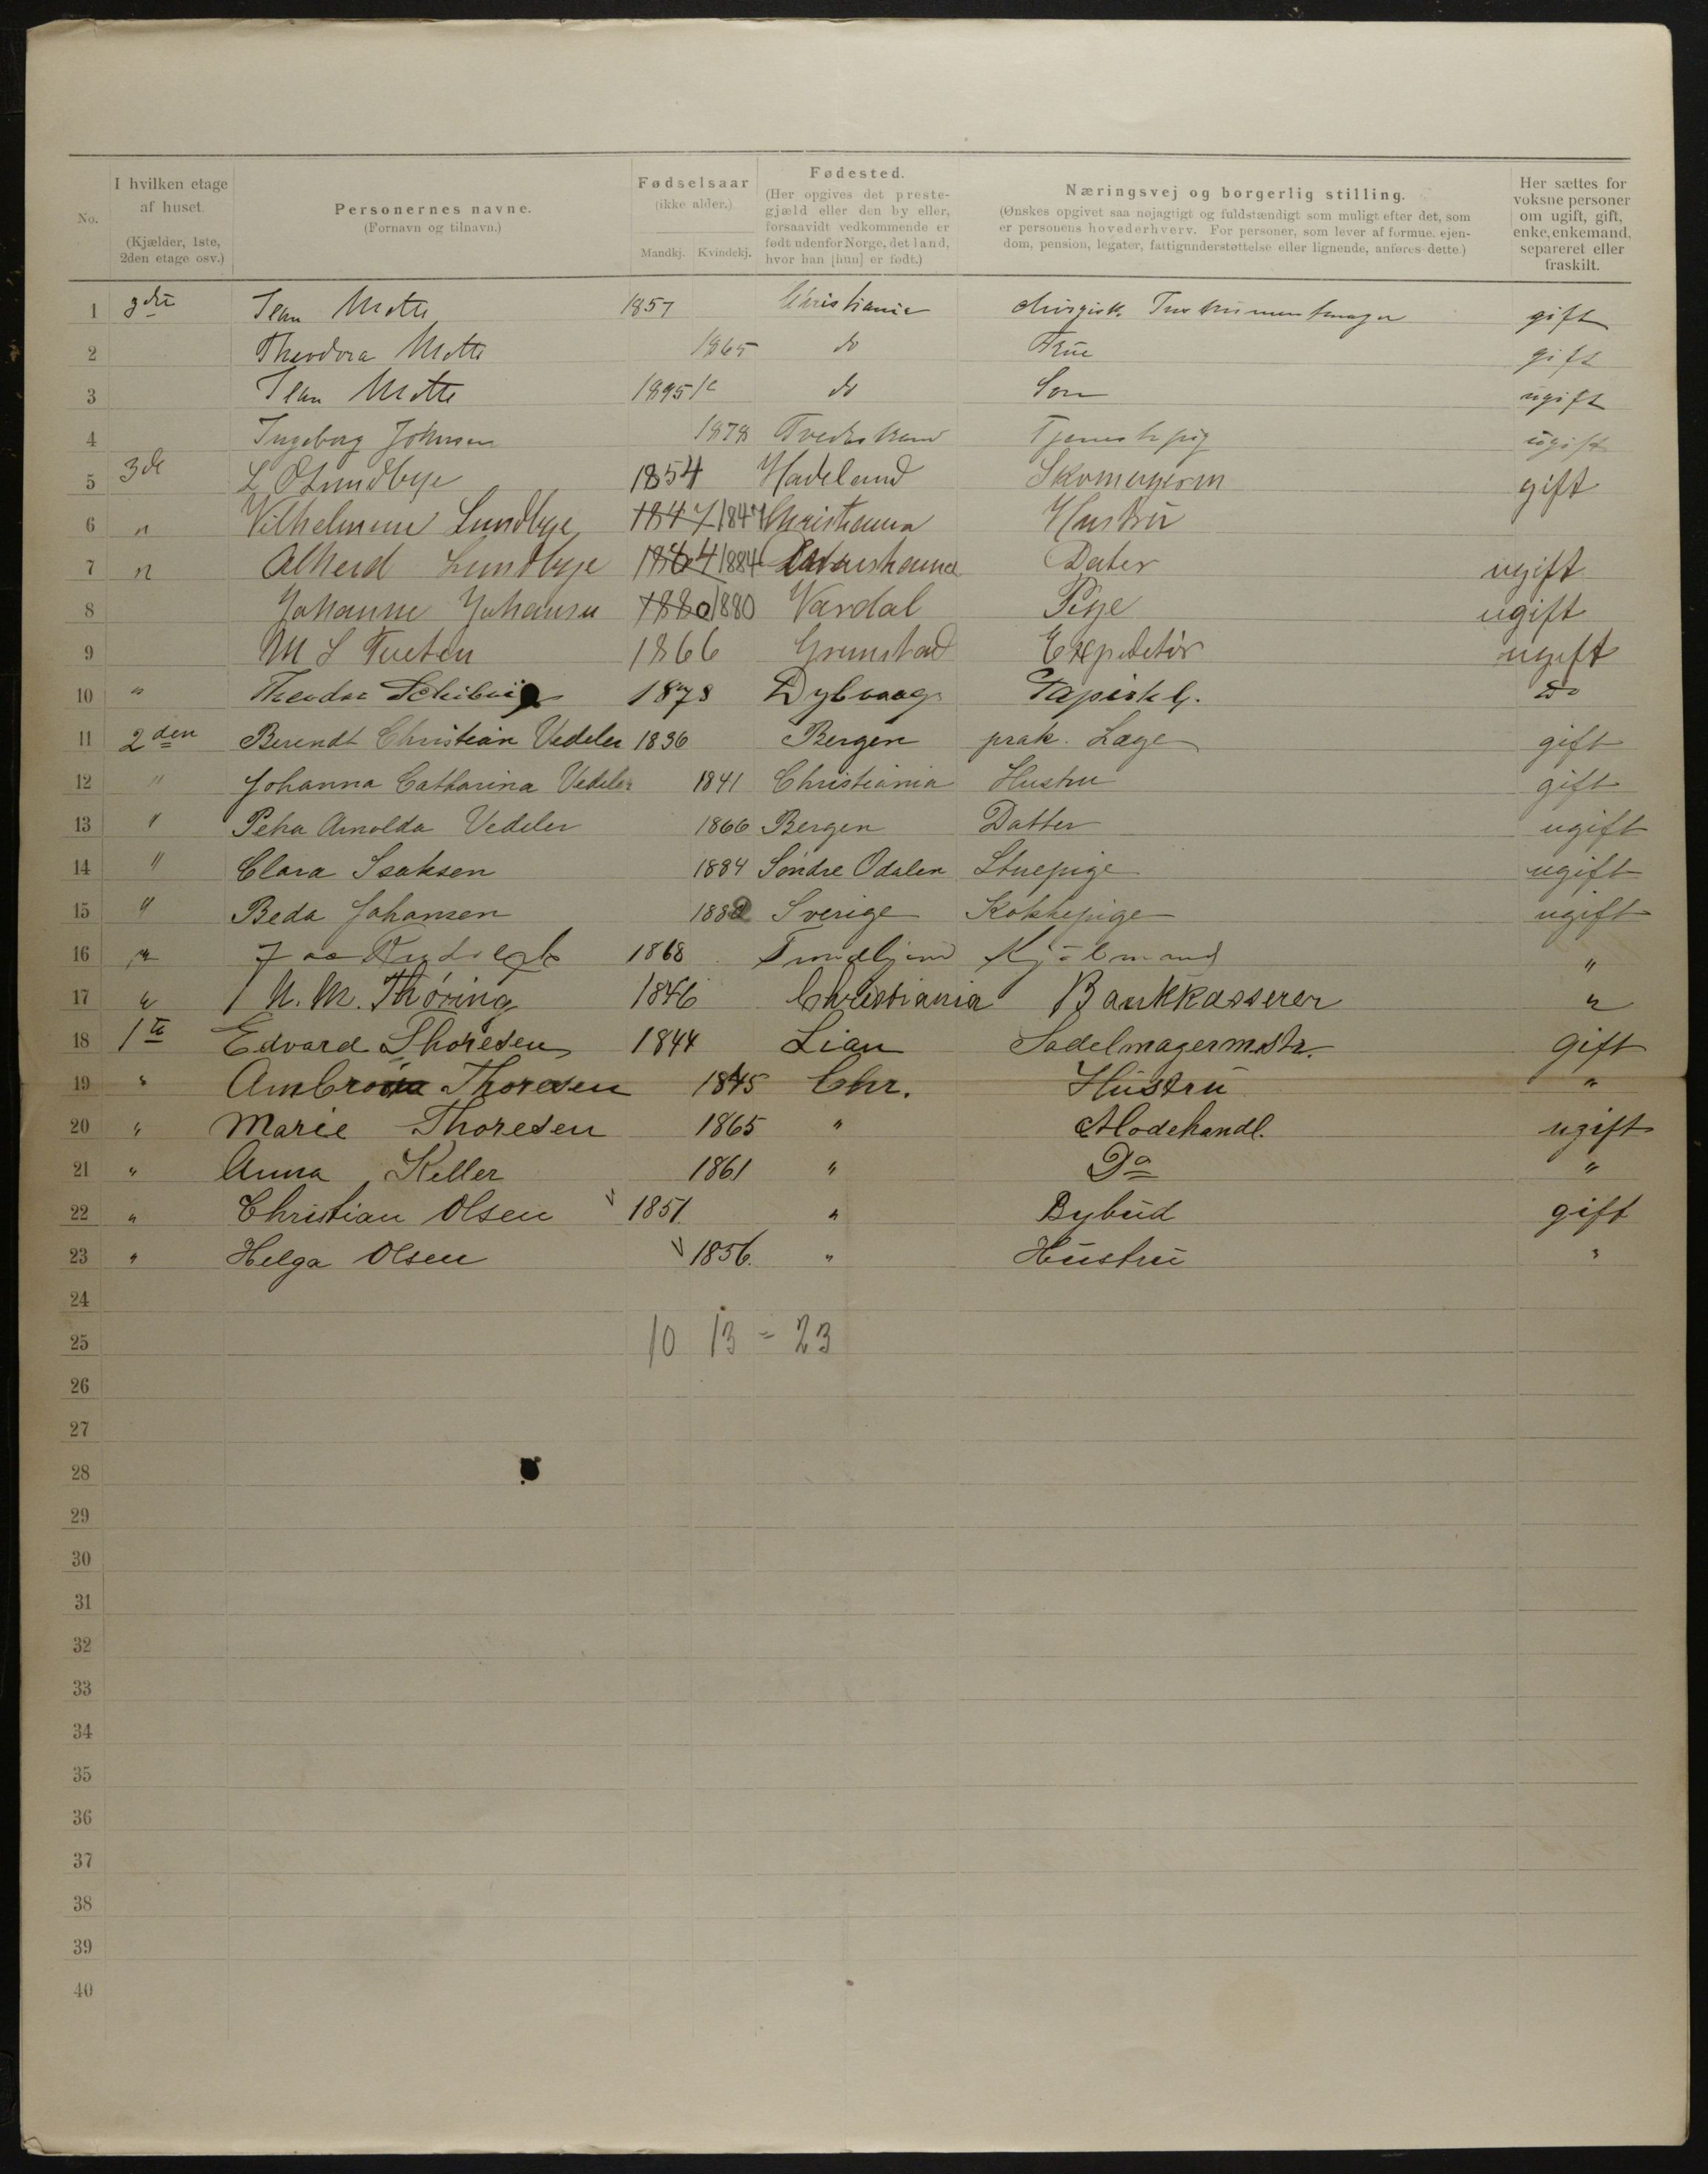 No.
I hvilken etage af huset.
(Kjælder, 1ste, 2den etage osv.)
Personernes navne.
(Fornavn og tilnavn.)
Fødselsaar
(ikke alder.)
Mandkj. Kvindekj.
Fødested.
(Her opgives det preste-
gjæld eller den by eller,
forsaavidt vedkommende er
født udenfor Norge, det land,
hvor han [hun] er født.)
Næringsvej og borgerlig stilling.
(Ønskes opgivet saa nøjagtigt og fuldstændigt som muligt efter det, som
er personens hovederhverv. For personer, som lever af formue, ejen-
dom, pension, legater, fattigunderstøttelse eller lignende, anføres dette.)
Her sættes for
voksne personer
om ugift, gift,
enke, enkemand,
separeret eller
fraskilt.
1 3die Jean Mette 1857 Christiania chirgisk. Instrumentmager gift
2 Theodora Mette 1865 do Frue gift
3 Jean Mette 1895 do Søn ugift
4 Ingeborg Johnsen 1878 Tvedestrand ugift
5 3de L O Lundbye 1854 Hadeland Skomagerm gift
6 " Vilhelmine Lundbye 1847 1847 Christiania Hustru
7 " Alheid Lundbye 1864 1884 Datter ugift
8 Johanne Johansen 1880 1880 Vardal Pige ugift
9 M S Tveten 1866 Grimstad Expeditør ugift
10 " Theodor 1878 Dybvaag do
11 2den Berendt Christian Vedeler 1836 Bergen prak. Læge gift
12 " Johanna Catharina Vedeler 1841 Christiania Hustru gift
13 " Petra Arnolda Vedeler 1866 Bergen Datter ugift
14 " Clara Isaksen 1884 Søndre Odalen Stuepige ugift
15 " Beda Johansen 1882 Sverige Kokkepige ugift
16 " 1868 Kjøbmand "
17 " N. M. Thøring 1846 Christiania Bankkasserer "
18 1te Edvard Thoresen 1844 Lian Sadelmagermstr. gift
19 " Ambrosia Thoresen 1845 Chr. Hustru "
20 " Marie Thoresen 1865 " Modehandl. ugift
21 " Anna Keller 1861 " Do "
22 " Christian Olsen 1851. " Bybud gift
23 " Helga Olsen 1856. " Hustru "
24
25 10 13 = 23
26
27
28
29
30
31
32
33
34
35
36
37
38
39
40